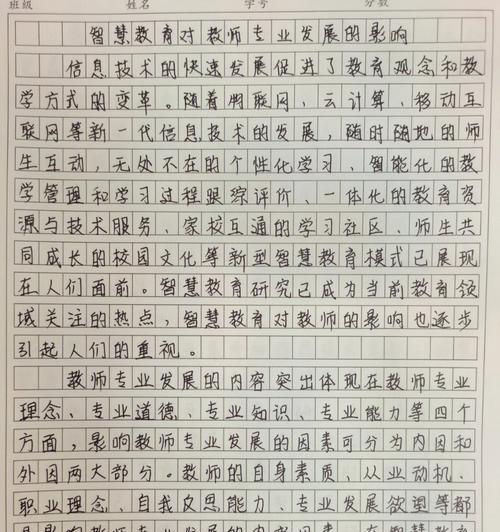 班级 姓名 学号 分数
智慧教育对教师专业发展的影响
信息技术的快速发展促进了教育观念和教
学方式的变革。随着物联网，云计算，移动互
联网等新一代信息技术的发展，随时随地的师
生互动，无处不在的个性化学习、智能化的教
学管理和学习过程跟踪评价、一体化的教育资
源与技术服务、家校互通的学习社区、师生共
同成长的校园文化等新型智慧教育模式已展现
在人们面前。智慧教育研究已成为当前教育领
域关注的热点，智慧教育对教师的影响也逐步
引起人们的重视。
教师专业发展的内容突出体现在教师专业
理念、专业道德、专业知识、专业能力等四个
方面，影响教师专业发展的因素可分为内因和
外因两大部分。教师的自身素质，从业动机、
职业理念、自我反思能力、专业发展欲望等都
是影响教师专业发展的